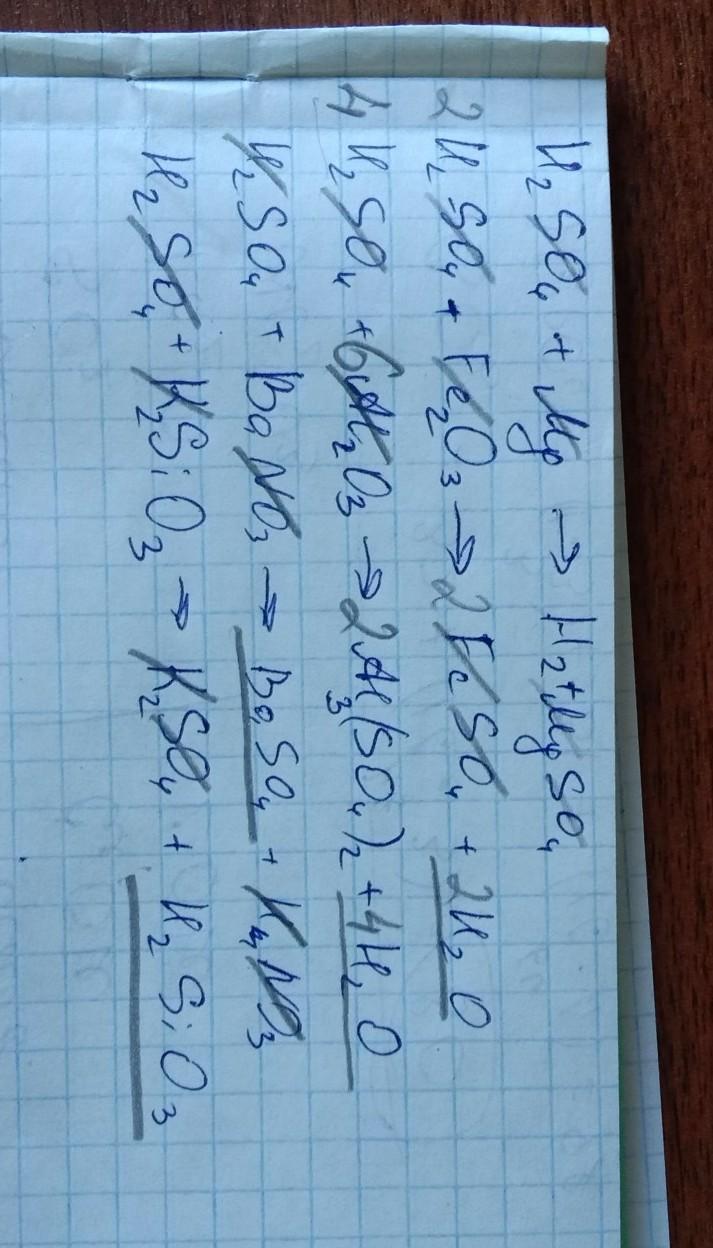 H₂SO₄ + Mg → H₂ + MgSO₄
2H₂SO₄ + Fe₂O₃ → 2FeSO₄ + 2H₂O
4H₂SO₄ + 6Al₂O₃ → 2Al₃(SO₄)₂ + 4H₂O
H₂SO₄ + BaNO₃ → BaSO₄ + H₄NO₃
H₂SO₄ + K₂SiO₃ → K₂SO₄ + H₂SiO₃